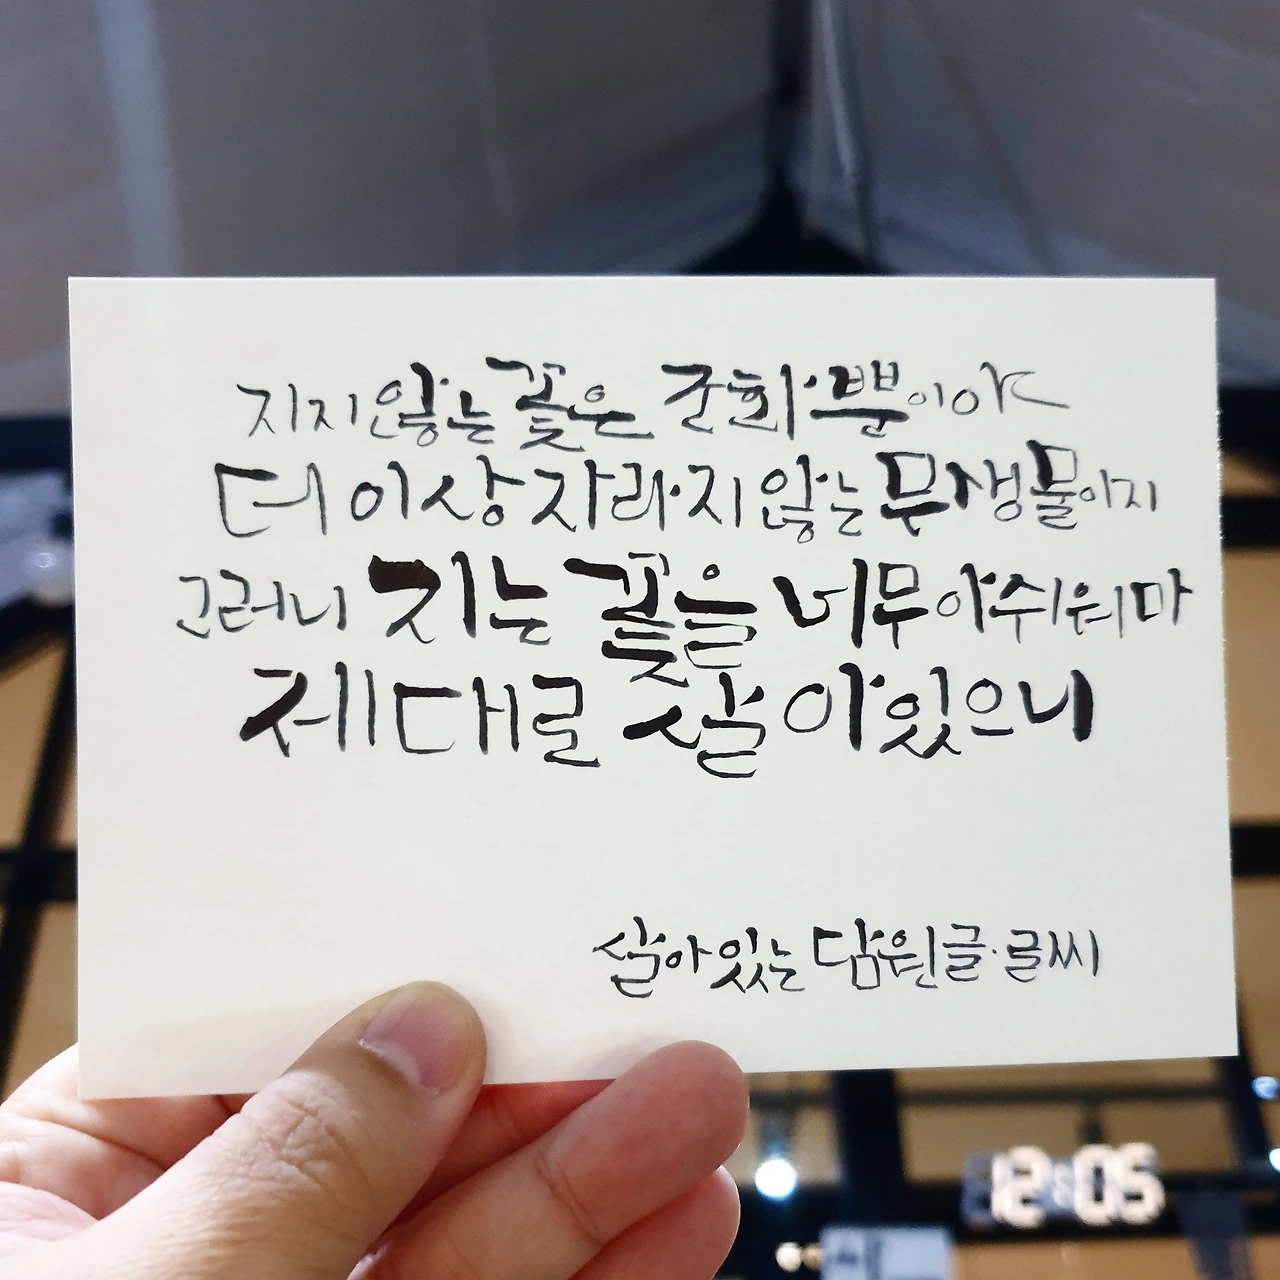 지지 않는 꽃은 조화 뿐이야
더 이상 자라지 않는 무생물이지
그러니 지는 꽃을 너무 아쉬워마
제대로 살아있으니
살아있는 담원글·글씨
12:05